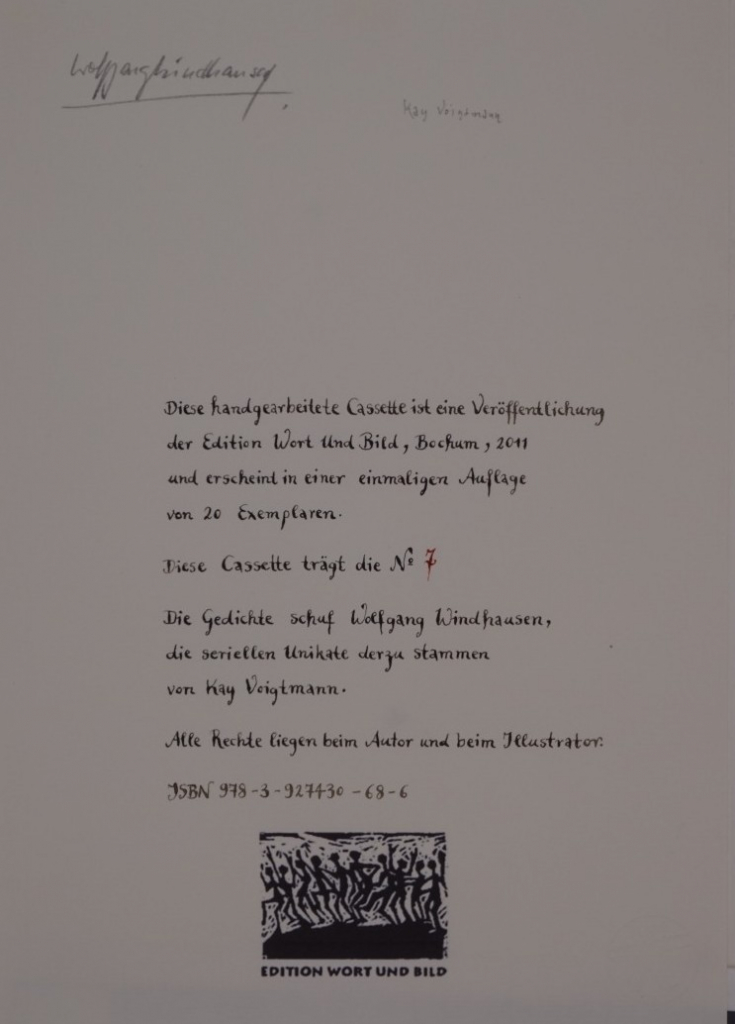 Wolfgang Windhausen
Kay Voigtmann
Diese handgearbeitete Cassette ist eine Veröffentlichung
der Edition Wort Und Bild, Bochum, 2011
und erscheint in einer einmaligen Auflage
von 20 Exemplaren.
Diese Cassette trägt die No 7
Die Gedichte schuf Wolfgang Windhausen,
die seriellen Unikate derzu stammen
von Kay Voigtmann.
Alle Rechte liegen beim Autor und beim Illustrator.
ISBN 978-3-927430-68-6
EDITION WORT UND BILD